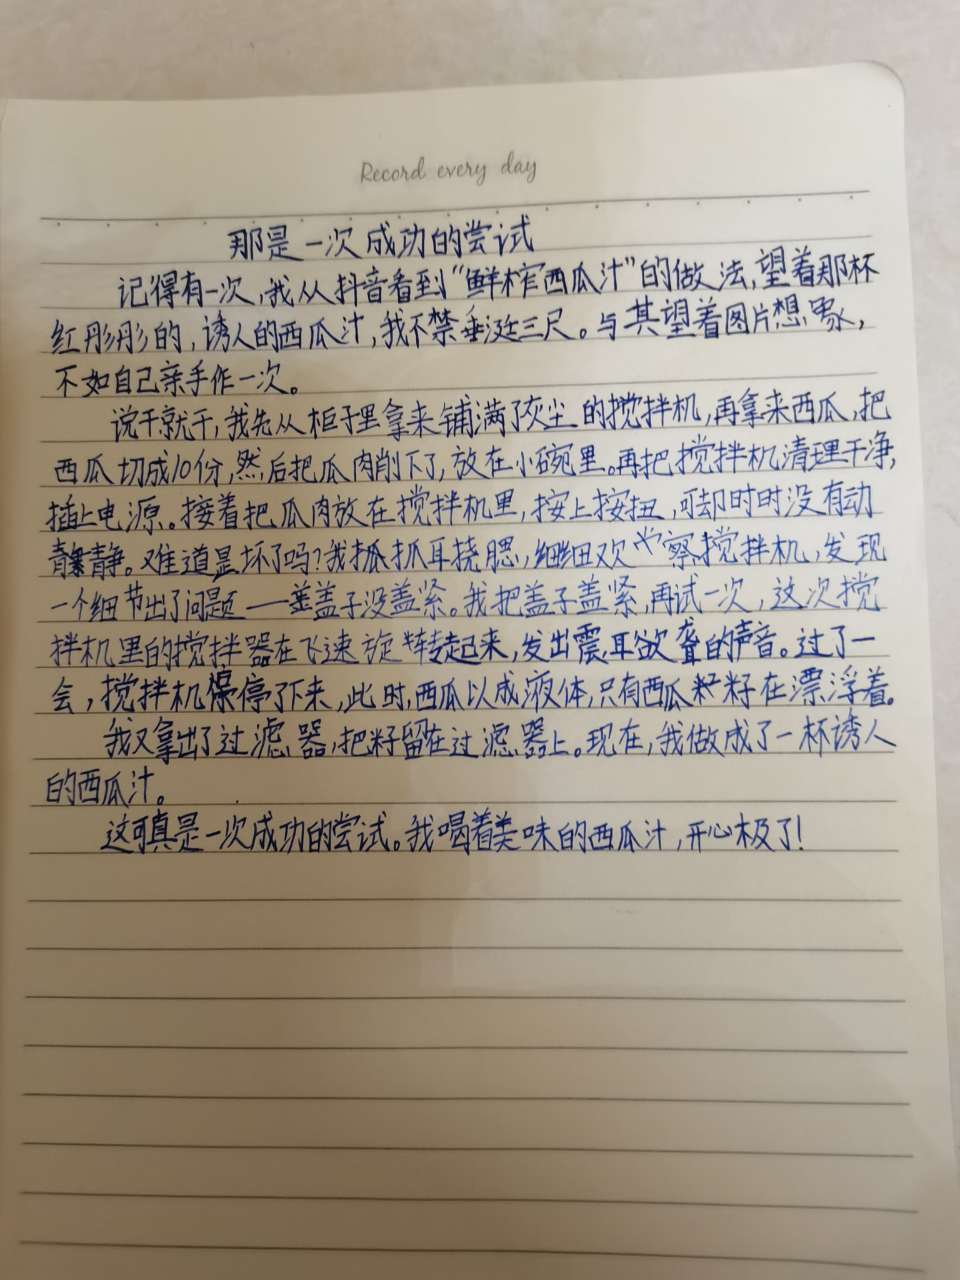 Record every day
那是一次成功的尝试
记得有一次,我从抖音看到“鲜榨西瓜汁”的做法,望着那杯
红彤彤的,诱人的西瓜汁,我不禁垂涎三尺。与其望着图片想象,
不如自己亲手作一次。
说干就干,我先从柜子里拿来铺满了灰尘的搅拌机,再拿来西瓜,把
西瓜切成10份,然后把瓜肉削下了,放在小碗里。再把搅拌机清理干净,
插上电源。接着把瓜肉放在搅拌机里,按上按扭,可却时时没有动
静。难道是坏了吗?我抓抓耳挠腮,细细观察搅拌机,发现
一个细节出了问题——盖子没盖紧。我把盖子盖紧,再试一次,这次搅
拌机里的搅拌器在飞速旋转起来,发出震耳欲聋的声音。过了一
会,搅拌机停了下来,此时,西瓜以成液体,只有西瓜籽在漂浮着。
我又拿出了过滤器,把籽留在过滤器上。现在,我做成了一杯诱人
的西瓜汁。
这可真是一次成功的尝试。我喝着美味的西瓜汁,开心极了!